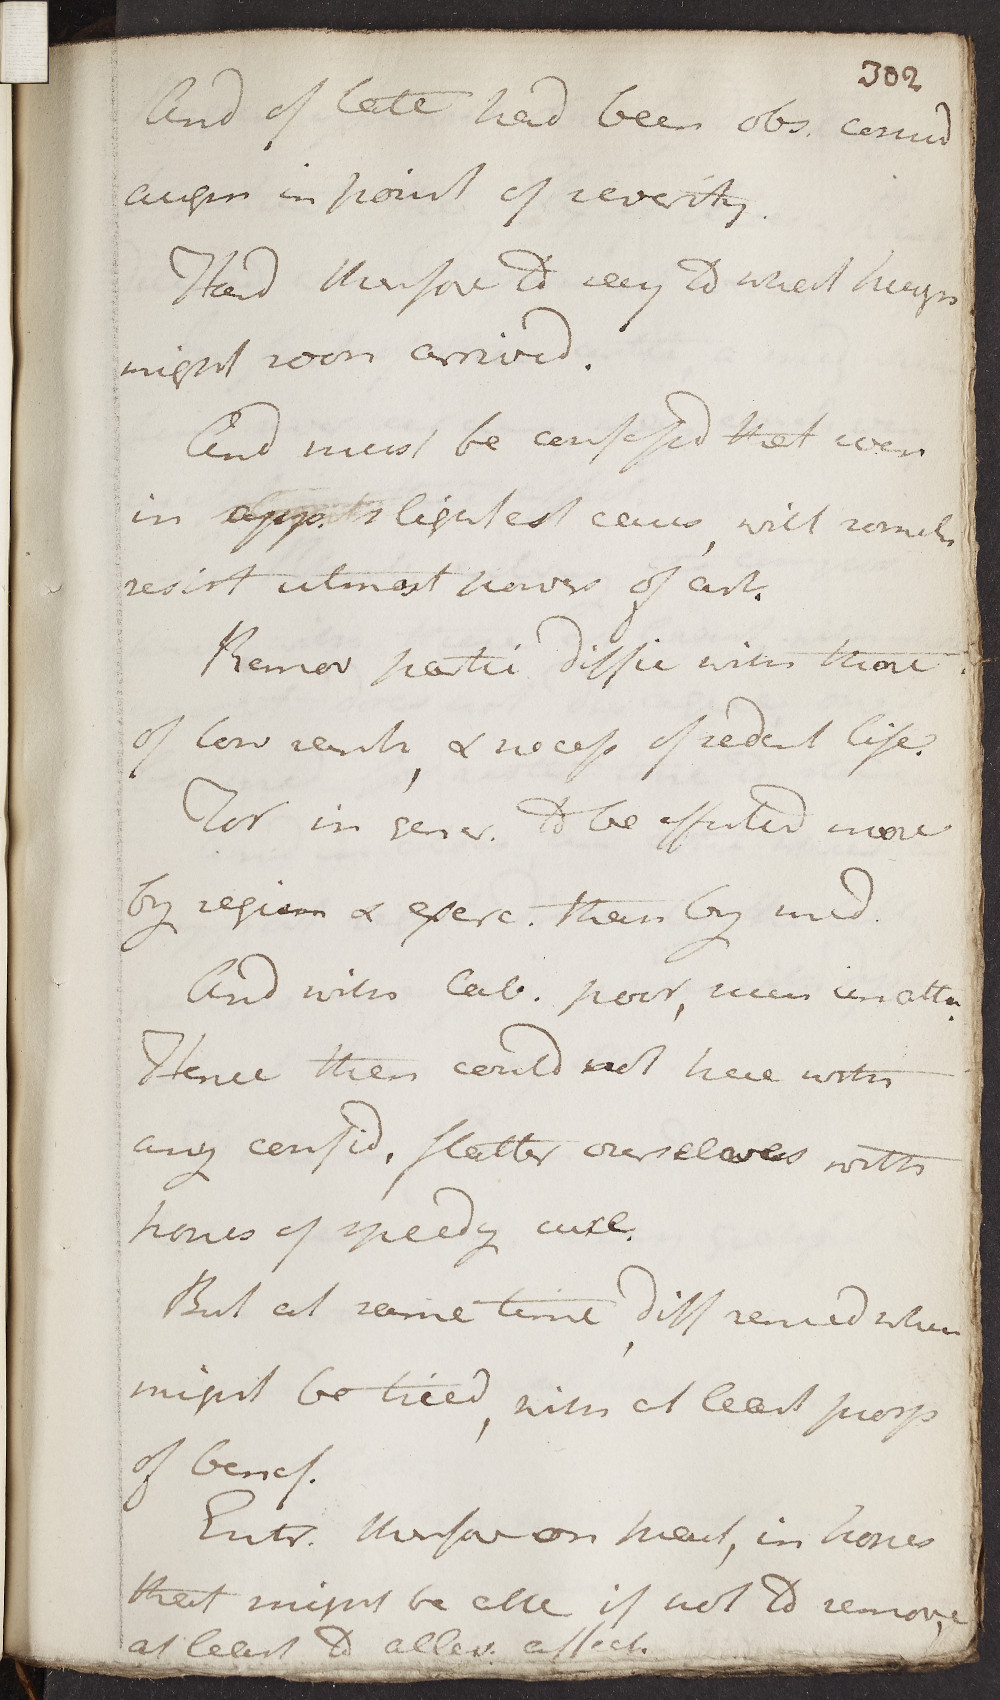 302
And of late had been obs. consid
augm in point of severity.
Hard therefore to say to what heigh
might soon arrived.
And must be confessed that even
in appr. slightest cases, will somets
resist utmost powers of art.
Remov partic diffic with those
of low ranks, & necess of sedent life.
For in gener. to be effected more
by regim & exerc. than by med.
And with lab. poor, mean inatten.
Hence then could not here with
any confid, flatter ourselves with
hopes of speedy cure.
But at same time, diff remed when
might be tried, with at least prosp
of benef.
Entr. therefore on treat, in hopes
that might be able if not to remove,
at least to allev. affect.